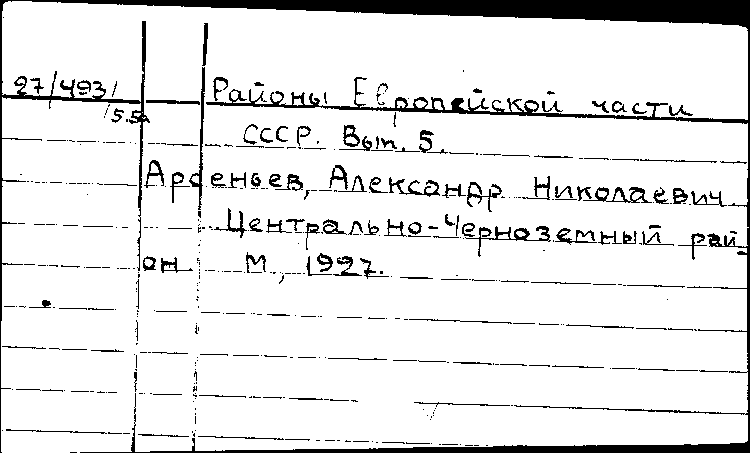 27/493/ Районы Европейской части
/5.5а
СССР. Вып. 5.
Арсеньев, Александр Николаевич
Центрально-Черноземный рай-
он. М, 1927.